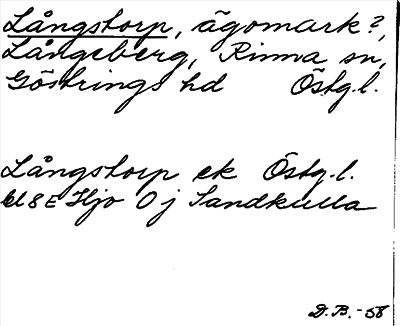 Långstorp, ägomark?,
Långeberg, Rinna sn,
Göstrings hd Östg.l.
Långstorp ek Östg.l.
bl 8 E Hjo O j Sandkulla
D.B. -58